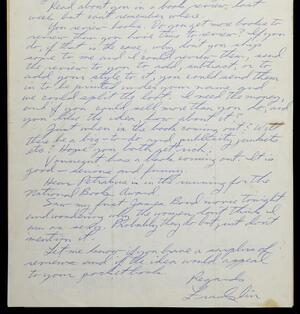 Read about you in a book review, last
week but can't remember where.
You review books. Do you get more books to
review than you have time to review? If you
do, if that is the case, why don't you ship
some to me and I could review them, send
the reviews to you to add, subtract, or to
add your style to it, you could send them
in to be printed under your name, and
we could split the loot. I need the money,
and if you could sell more than you do, and
you like the idea, how about it?
Just when is the book coming out? Will
there be a big to-do and publicity junkets
etc? Hope you both get rich.
Vonnegut has a book coming out. It is
good - demonic and funny.
Hear Petrakis is in the running for the
National Book Award.
Saw my first James Bond movie tonight
and wondering why the women don't think I
am so sexy. Probably they do but just don't
mention it.
Let me know if you have a surplus of
reviews and if the idea would appeal
to your pocketbook.
Regards
Franklin